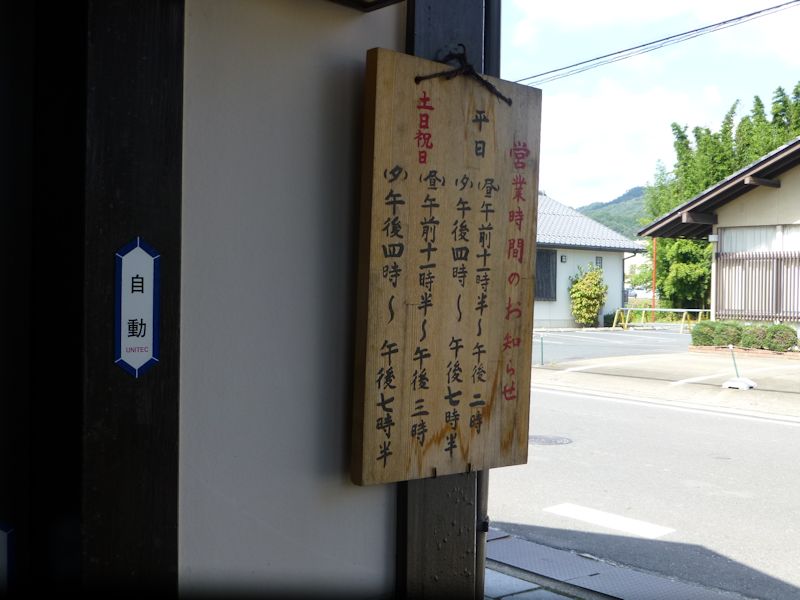 営業時間のお知らせ
平日
(昼)午前十一時半~午後二時
(夕)午後四時~午後七時半
土日祝日
(昼)午前十一時半~午後三時
(夕)午後四時~午後七時半
自動
UNITEC